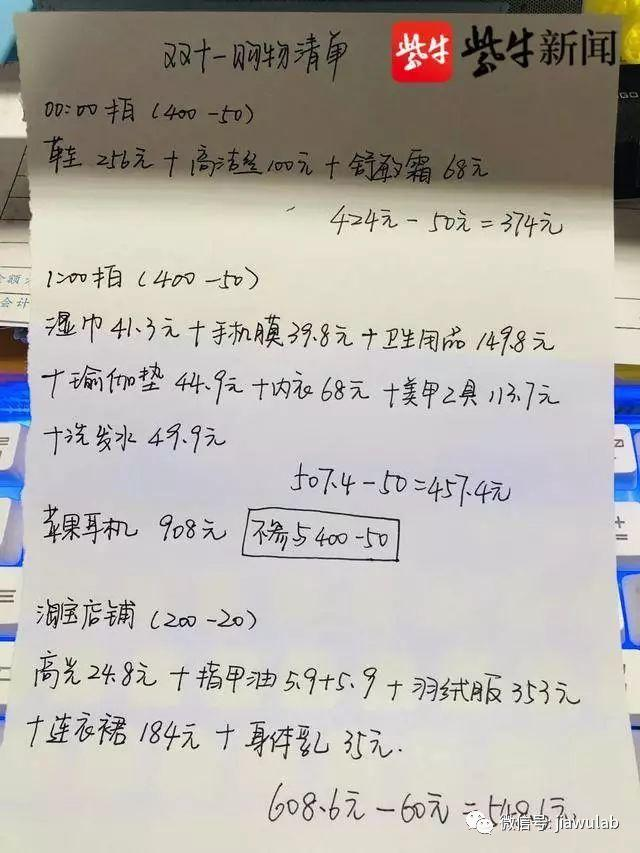 双十一购物清单
紫牛 紫牛新闻
00:00拍(400-50)
鞋256元+高洁丝100元+舒敏霜68元
424元-50元=374元
1:00拍(400-50)
湿巾41.3元+手机膜39.8元+卫生用品149.8元
+瑜伽垫44.9元+内衣68元+美甲工具113.7元
+洗发水49.9元
507.4-50=457.4元
苹果耳机 908元 不参与400-50
淘宝店铺(200-20)
高光24.8元+指甲油5.9+5.9+羽绒服353元
+连衣裙184元+身体乳35元.
608.6元-60元=548.6元
微信号: jiawulab